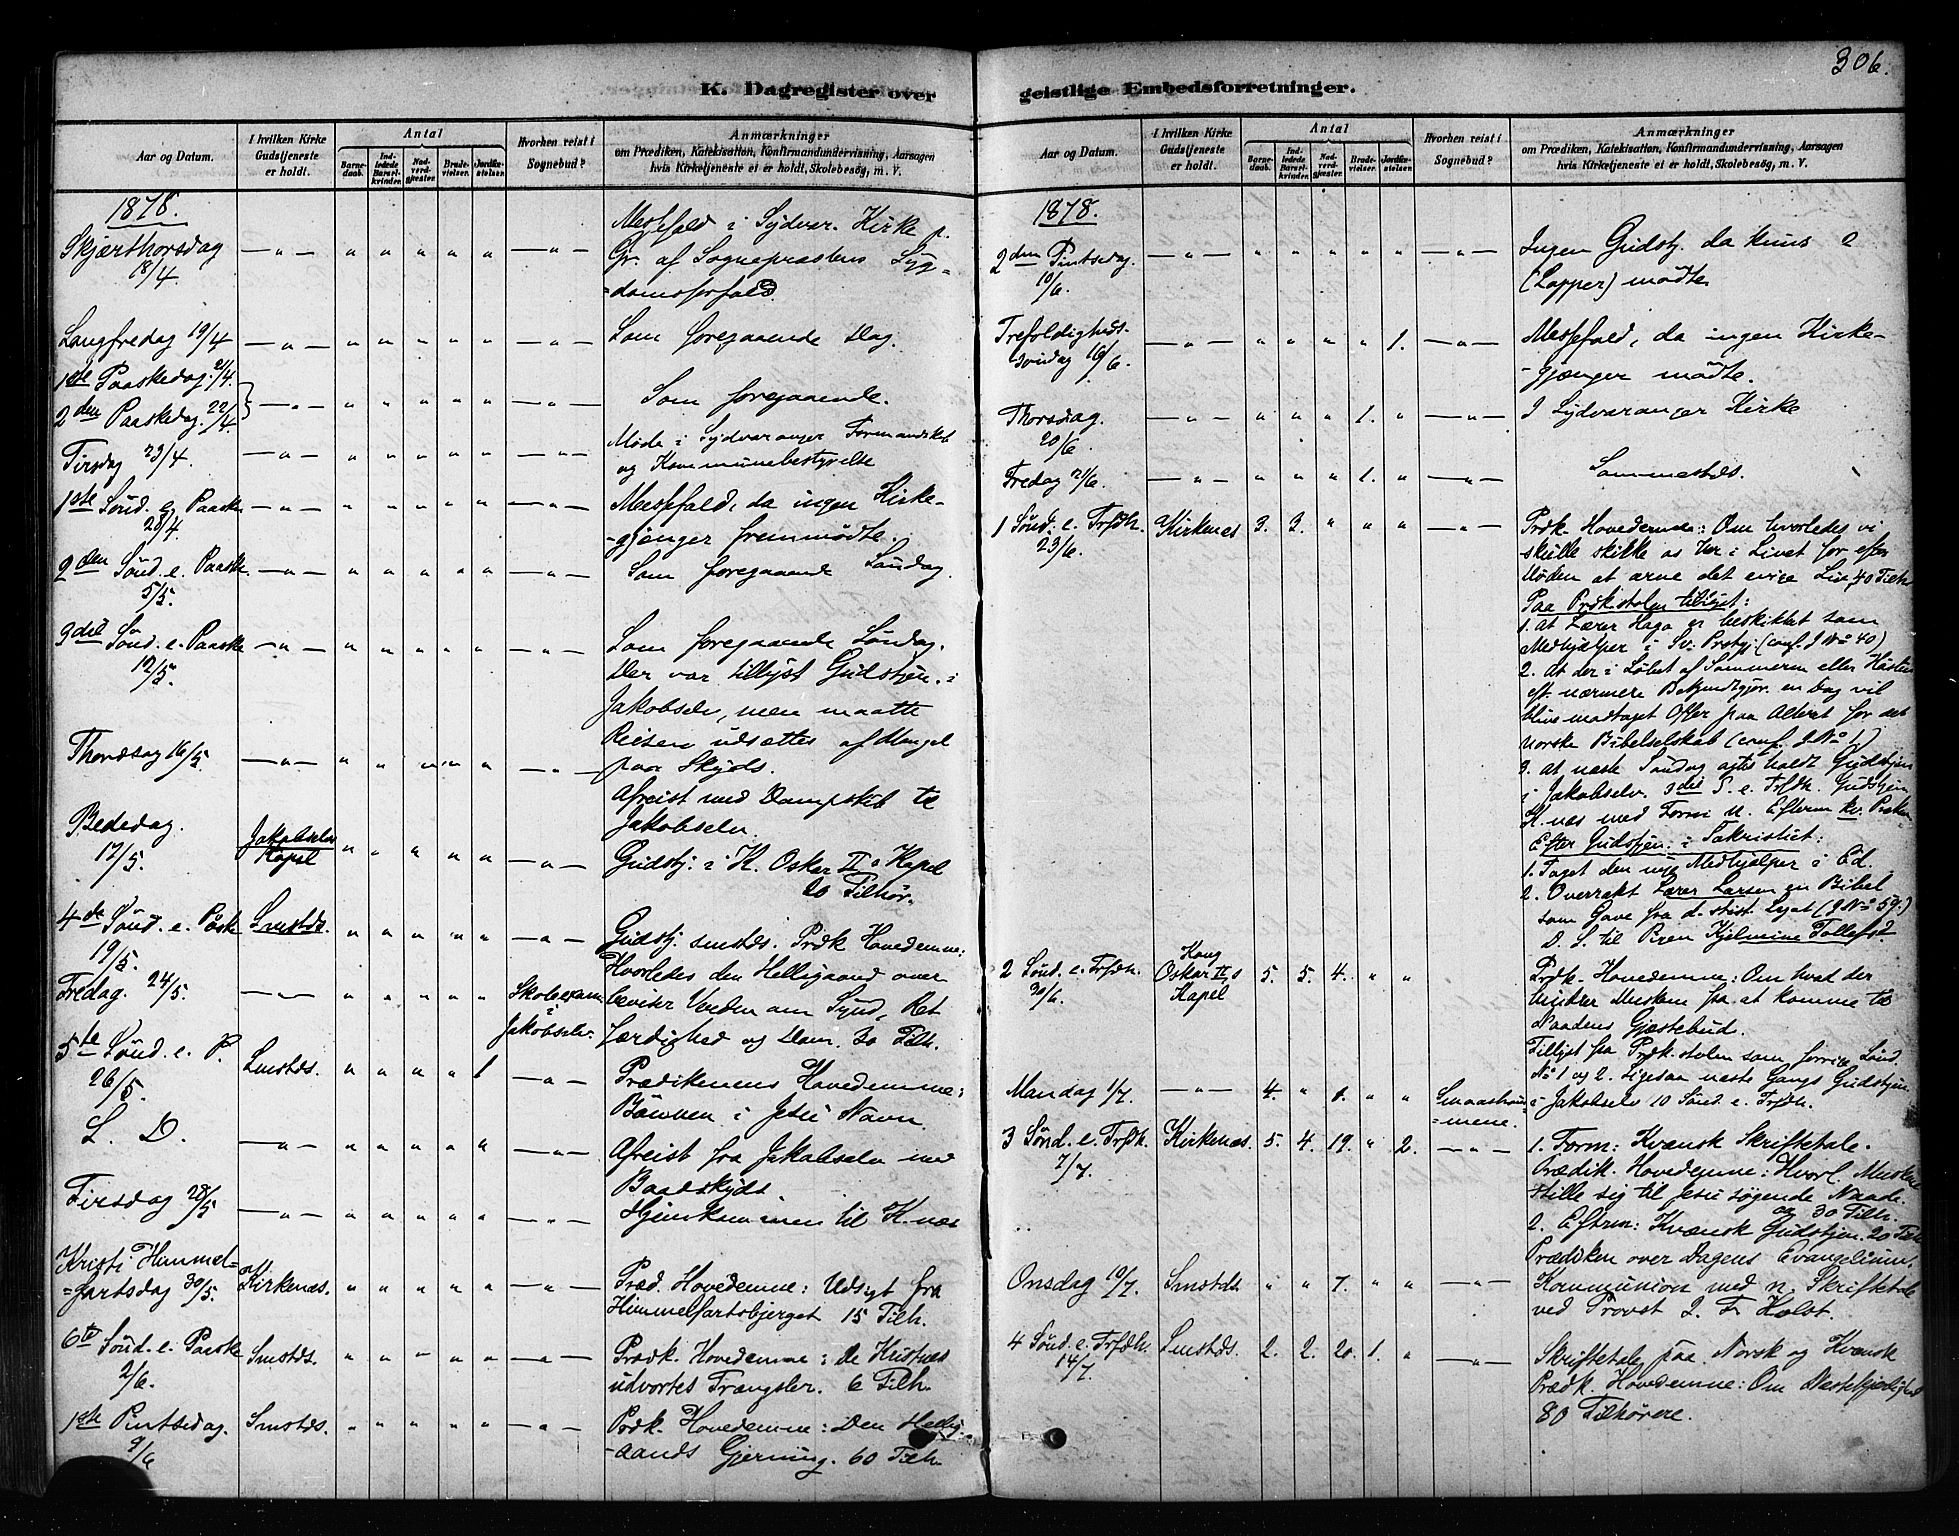 306.
K. Dagregister over geistlige Embedsforretninger.
Aar og Datum.
I hvilken Kirke Gudstjeneste er holdt.
Antal
Barnedaab.
Indledede Barselkvinder.
Nadverdgjester.
Brudevielser.
Jordfæstelser.
Hvorhen reist i Sognebud?
Anmærkninger
om Prædiken, Katekisation, Konfirmandundervisning, Aarsagen
hvis Kirketjeneste ei er holdt, Skolebesøg, m. V.
1878.
Skjærthorsdag 18/4 Messefald i Sydvar. Kirke p.
Gr. af Sognepræstens Syg-
=domsforfald.
Langfredag 19/4 Som foregaaende Dag.
1ste Paaskedag. 21/4.
2den Paaskedag. 22/4. Som foregaaende.
Tirsdag 23/4. Møde i Sydvaranger Formandskab
og Kommunebestyrelse
1ste Sønd. e. Paaske 28/4. Messefald, da ingen Kirke-
-gjænger fremmødte.
2den Sønd. e. Paaske. 5/5. Som foregaaende Søndag.
3die Sønd. e. Paaske 12/5. Som foregaaende Søndag.
Der var tillyst Gudstjen. i
Jakobselv, men maatte
Reisen udsættes af Mangel
paa Skyds.
Thorsdag 16/5. Afreist med Dampskib til
Jakobselv.
Bededag. 17/5. Jakobselv Kapel Gudstj. i K. Oskar II's Kapel
20 Tilhør.
4de Sønd. e. Paaske 19/5. Smstds. Gudstj. smstds. Prdk. Hovedemne:
Hvorledes den Helligaand over
beviser Verden om Synd, Ret
færdighed og Dom. 30 Tilh.
Fredag. 24/5. Skoleexam. i Jakobselv.
5te Sønd. e. P. 26/5. Smstds. 1 Prædikenens Hovedemne:
Bønnen i Jesu Navn
S. D. Afreist fra Jakobselv med
Baadskyds.
Tirsdag 28/5 Hjemkommen til K.næs
Kristi Himmel-
=fartsdag 30/5. Kirkenæs. Præd. Hovedemne: Udsyt fra
Himmelfartsbjerget 15 Tilh.
6te Sønd. e. Paaske 2/6. Smstds. Prædk. Hovedemne: De Kristnes
udvortes Trængsler. 6 Tilh.
1ste Pintsedag. 9/6 Smstds. Prdk. Hovedemne: Den Hellig-
-aands Gjerning. 60 Tilh.
K. Dagregister over geistlige Embedsforretninger.
Aar og Datum.
I hvilken Kirke Gudstjeneste er holdt.
Antal
Barnedaab.
Indledede Barselkvinder.
Nadverdgjester.
Brudevielser.
Jordfæstelser.
Hvorhen reist i Sognebud?
Anmærkninger
om Prædiken, Katekisation, Konfirmandundervisning, Aarsagen
hvis Kirketjeneste ei er holdt, Skolebesøg, m. V.
1878.
2den Pintsedag. 10/6. Ingen Gudstj. da kuns 2
(Lapper) mødte.
Trefoldigheds-
søndag 16/6. 1. Messefald, da ingen Kirke-
-gjænger mødte.
Thorsdag. 20/6 1. I Sydvaranger Kirke
Fredag 21/6. 1. Sammesteds.
1 Sønd. e. Trfdh. 23/6. Kirkenæs 3. 3. Prdk. Hovedemne: Om hvorledes vi
skulle skikke os her i Livet for efter
Døden at arve det evige Liv, 40 Tilh.
Paa Prdkstolen tillyst:
1. at Lærer Haga er beskikket som
Medhjælper i Sv. Prstgj. (conf. J. No 40)
2. at der i Løbet af Sommeren eller Høsten
eft. nærmere Bekjendtgjør. en Dag vil
blive modtaget Offer paa Alteret for det
norske Bibelselskab (conf. J No 1)
3. at næste Søndag agtes holdt Gudstjen.
i Jakobselv. 3die S. e. Trfdh. Gudstjen.
K.næs med Form. N. Efterm kv. Præken
Efter Gudstjen: i Sakristiet:
1. Taget den nye Medhjælper i Ed.
2. Overrakt Lærer Larsen en Bibel
som Gave fra (J No 59.)
D. S. til Pigen Kjelmine Tollefsd.
2 Sønd. e. Trfdh. 30/6. Kong Oskar II,s Kapel 5. 5. 4. Prdk. Hovedemne: Om hvad der
hindrer Mnskene fra at komme til
Naadens Gjæstebud.
Tillyst fra Prdk.stolen som forrige Sønd.
No 1 og 2. Ligesaa næste Gangs Gudstjen.
i Jakobselv 10 Sønd. e. Trfdh.
Mandag 1/7. 4. 1.
3 Sønd. e. Trfdh. 7/7. Kirkenæs 5. 4. 19. 2. 1. Form: Kvænsk Skriftetale.
Prædik. Hovedemne: Hvorl. Mnskene
stille sig til Jesu søgende Naade.
30 Tilh.
2. Eftrm: Kvænsk Gudstjen. 20 Tilh
Prædiken over Dagens Evangelium.
Onsdag 10/7. Smstds. 7. Kommunion med n. Skriftetale
ved Provst J. F. Holst.
4 Sønd. e. Trfdh. 14/7. Smstds. 2. 2. 20. 1. Skriftetale paa Norsk og Kvænsk
Prædk. Hovedemne: Om Næstekjærlighed
80 Tilhørere.